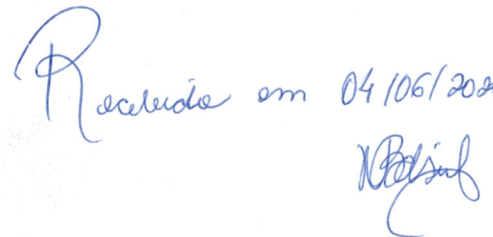 Recebido em 04/06/202